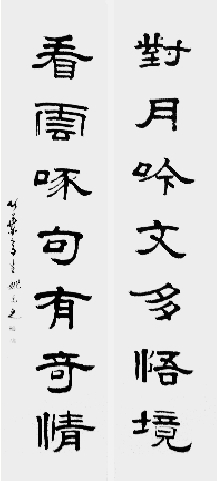 對月吟文多悟境
看雲啄句有奇情